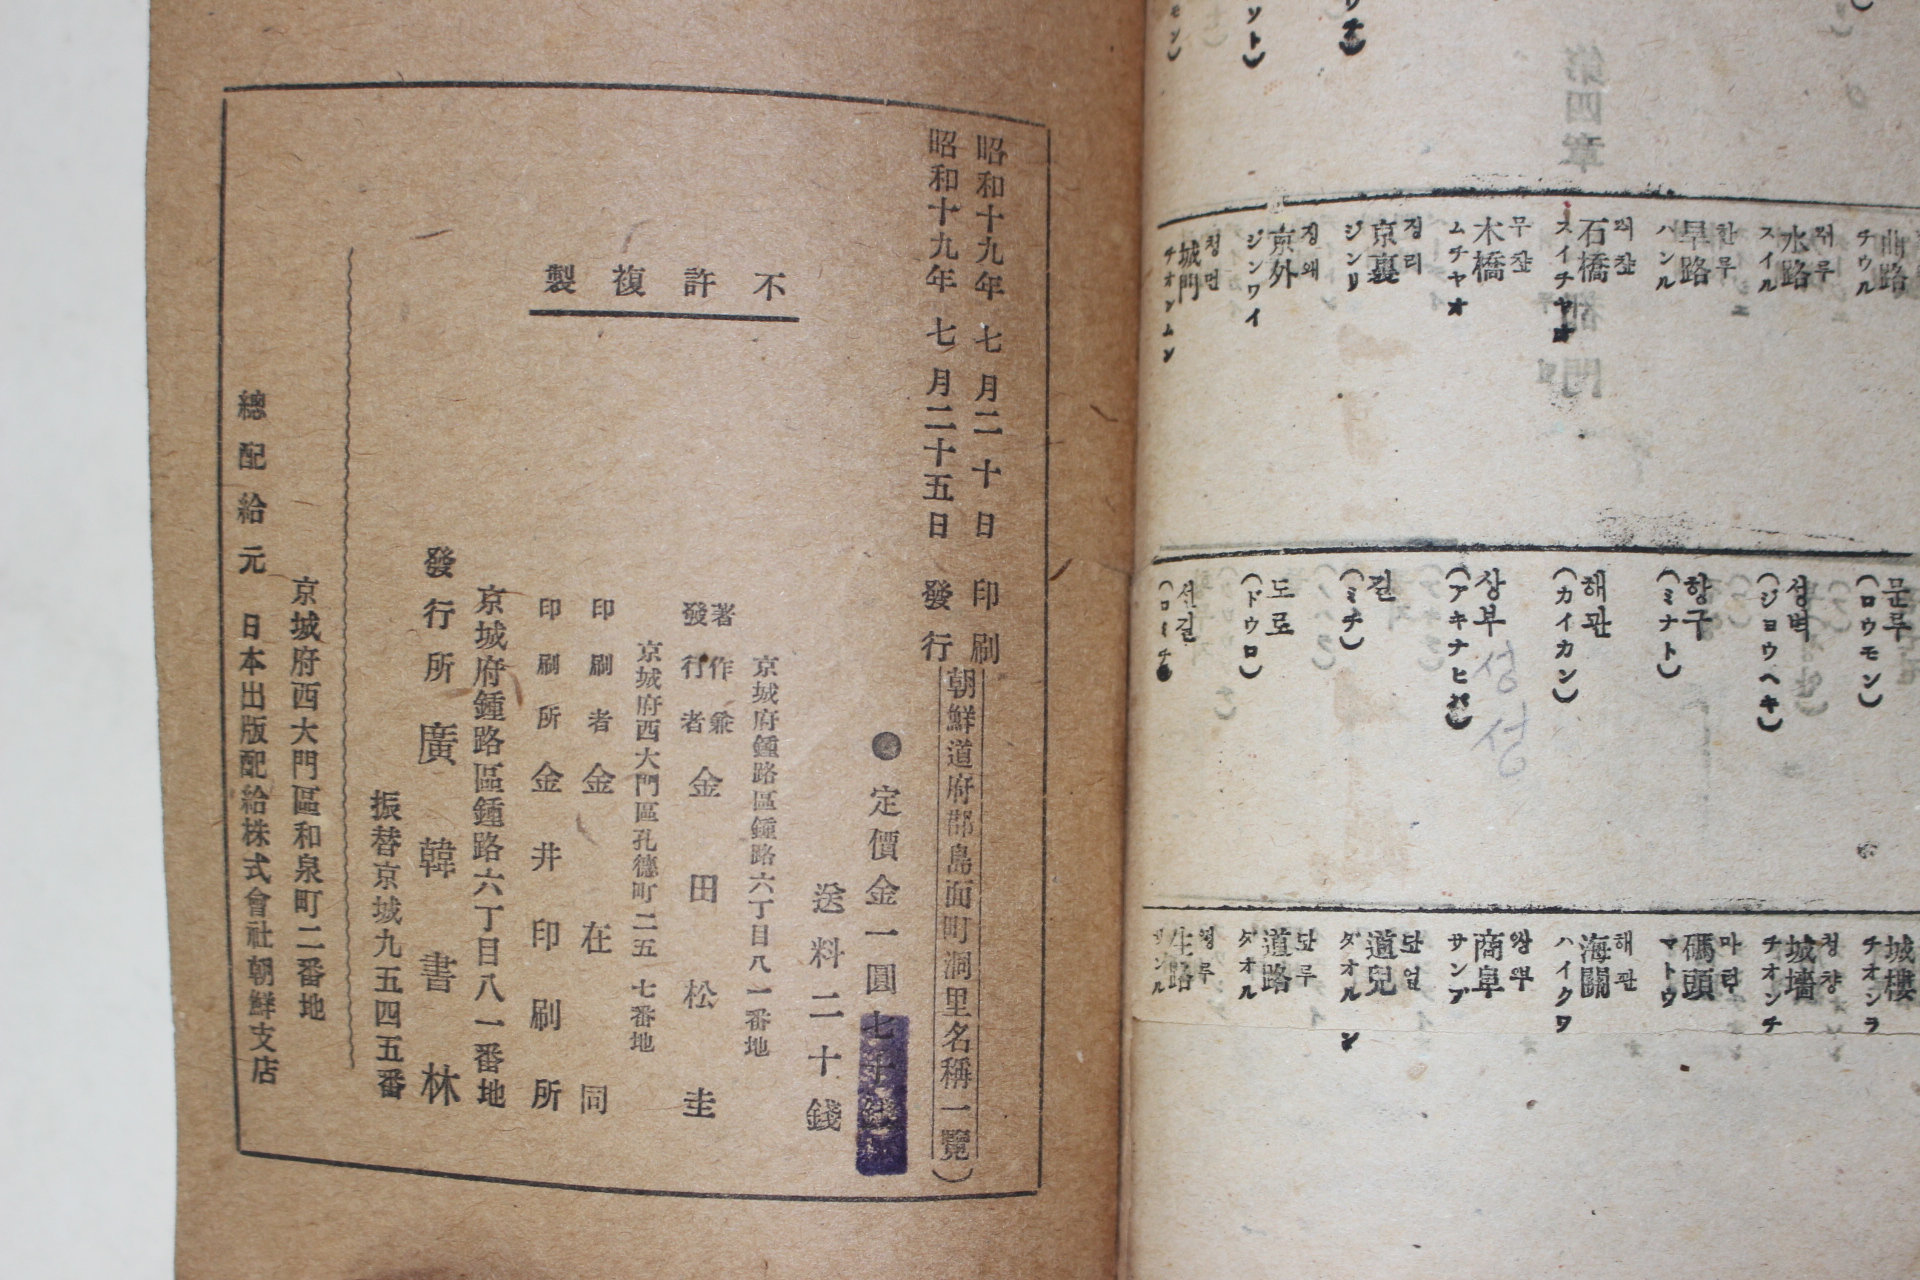 曲路
チウル
수루
水路
スイル
한루
旱路
ハンル
石橋
スイチヤオ
무챺
木橋
ムチヤオ
징리
京裏
ジンリ
징왜
京外
ジンワイ
청먼
城門
チオンムン
문루
(ロウモン)
성벽
(ジヨウヘキ)
항구
(ミナト)
해관
(カイカン)
상부
길
(ミチ)
도로
(ドウロ)
선길
성
성
城樓
チオンラ
청챵
城墻
チオンチ
마턱
碼頭
マトウ
해관
海關
ハイクワ
商阜
サンプ
道兒
ダオルン
닾루
道路
ダオル
生路
昭和十九年七月二十日印刷
昭和十九年七月二十五日發行
朝鮮道府郡島面町洞里名稱一覽)
●定價金一圓七十錢
送料二十錢
不許複製
京城府鍾路區鍾路六丁目八一番地
著作兼
發行者 金田松圭
京城府西大門區孔德町二五ノ七番地
印刷者 金在同
印刷所 金井印刷所
京城府鍾路區鍾路六丁目八一番地
發行所 廣韓書林
振替京城九五四五番
京城府西大門區和泉町二番地
總配給元 日本出版配給株式會社朝鮮支店